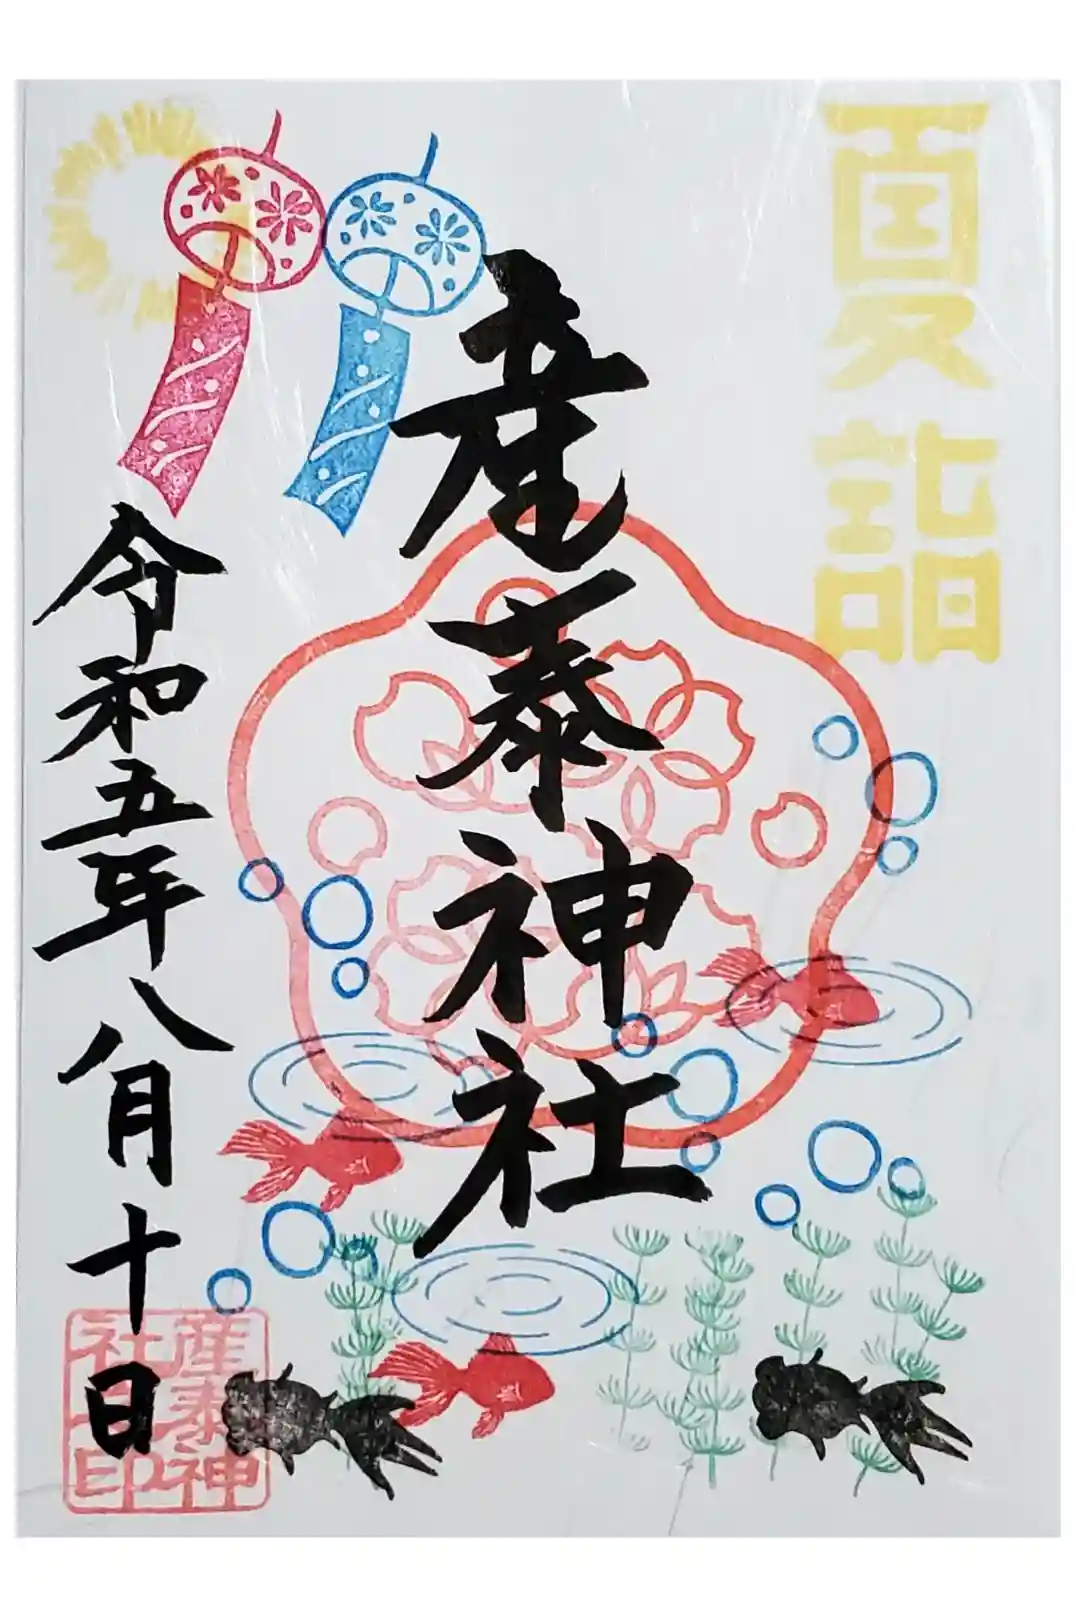 夏詣
産泰神社
令和五年八月十日
産泰神
社之印